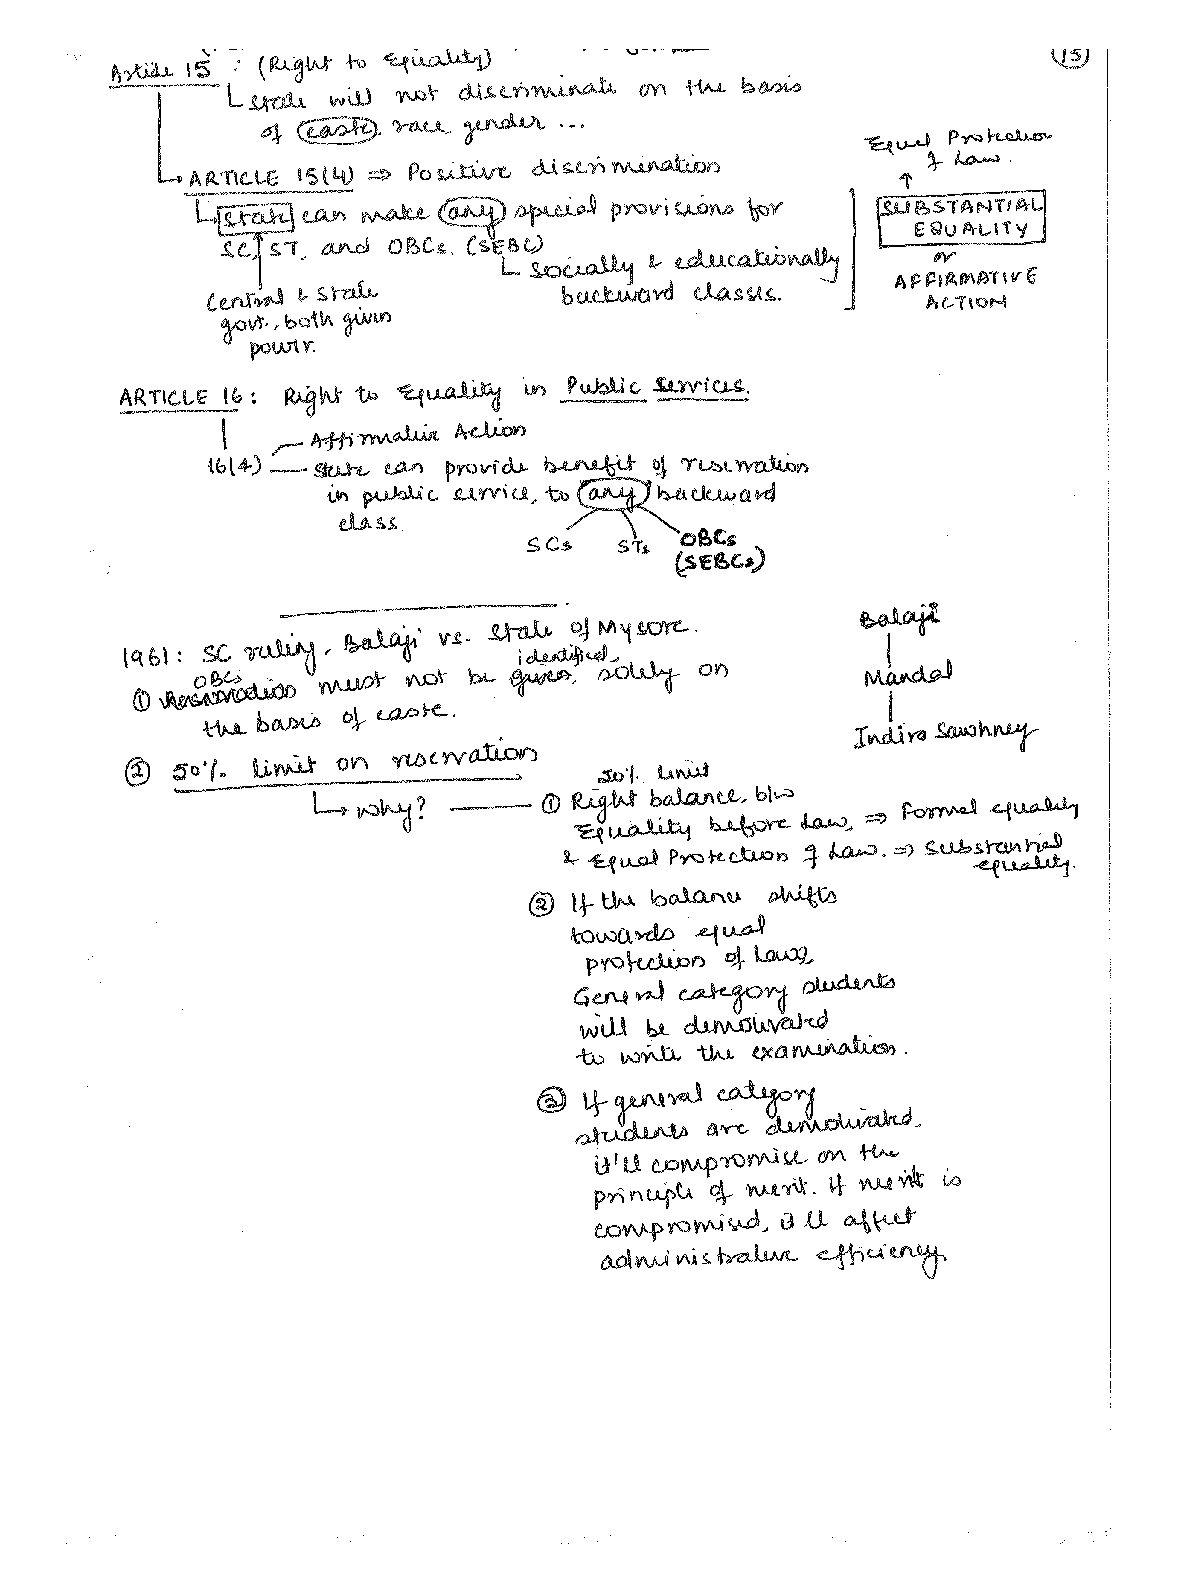 (15)
Article 15 : (Right to Equality)
State will not discriminate on the basis
of caste, race gender ...
ARTICLE 15(4) ⇒ Positive discrimination
State can make any special provisions for
SC, ST, and OBCs. (SEBC)
Socially & educationally
backward classes.
Central & State
govt., both given
power.
Equal Protection
of Law.
↑
SUBSTANTIAL
EQUALITY
or
AFFIRMATIVE
ACTION
ARTICLE 16 : Right to Equality in Public Services.
Affirmative Action
16(4) — State can provide benefit of reservation
in public service, to any backward
class.
SCs STs OBCs
(SEBCs)
1961 : SC ruling, Balaji vs. State of Mysore.
OBCs identified
① Reservation must not be given, solely on
the basis of caste.
② 50% limit on reservation
Balaji
Mandal
Indira Sawhney
↳ Why? — 50% limit
① Right balance, b/w
Equality before Law, ⇒ Formal equality
& Equal Protection of Law. ⇒ Substantial
equality.
② If the balance shifts
towards equal
protection of Laws,
General category students
will be demotivated
to write the examination.
③ If general category
students are demotivated,
it'll compromise on the
principle of merit. If merit is
compromised, it'll affect
administrative efficiency.